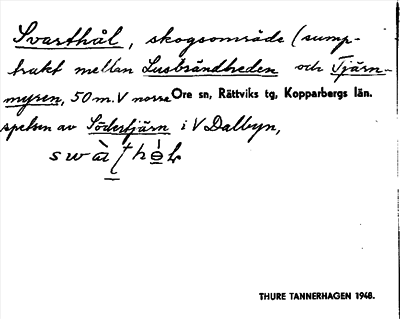 Svarthål, skogsområde (sump-
trakt mellan Lusbrändheden och Tjärn-
myren, 50 m. V norra Ore sn, Rättviks tg, Kopparbergs län.
spetsen av Södertjärn i V Dalbyn,
THURE TANNERHAGEN 1948.